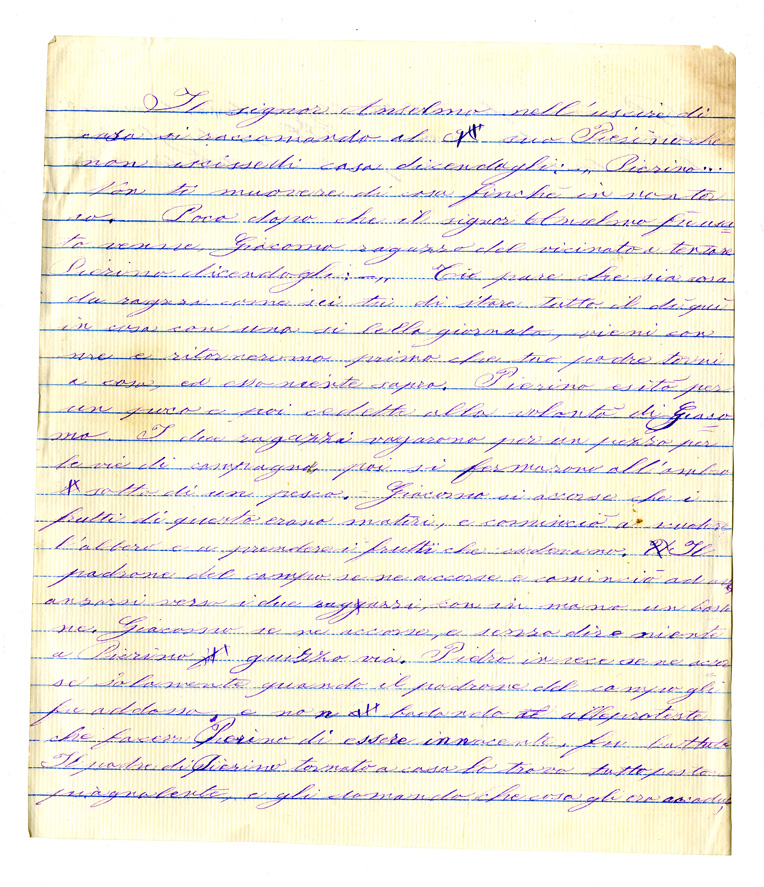 Il signor Anselmo nell'uscire di
casa si raccomandò al suo Pierino che
non uscisse di casa dicendogli: „ Pierino...
Non ti muovere di casa finchè io non tor
no. Poco dopo che il signor Anselmo fu usci
to venne Giacomo ragazzo del vicinato a tentare
Pierino dicendogli: – „ Tie pare che sia cosa
da ragazzi come sei tu di stare tutto il dì qui
in casa con una si bella giornata, vieni con
me e ritorneremo prima che tuo padre torni
a casa, ed esso niente saprà. Pierino esitò per
un poco e poi cedette alla volontà di Giaco
mo. I due ragazzi vagarono per un pezzo per
le vie di campagna, poi si fermarono all'ombra
sotto di un pesco. Giacomo si accorse che i
frutti di questo erano maturi, e cominciò a scuotere
l'albero e a prendere i frutti che cadevano. Il
padrone del campo se ne accorse e cominciò ad av
anzarsi verso i due ragazzi, con in mano un basto
ne. Giacomo se ne accorse, e senza dire niente
a Pierino guizzò via. Pietro invece se ne accor
se solamente quando il padrone del campo gli
fu addosso, e non badando alle proteste
che faceva Pierino di essere innocente, fu battuto
Il padre di Pierino tornato a casa lo trovò tutto pesto
piagnolente, e gli domandò che cosa gli era accaduto,